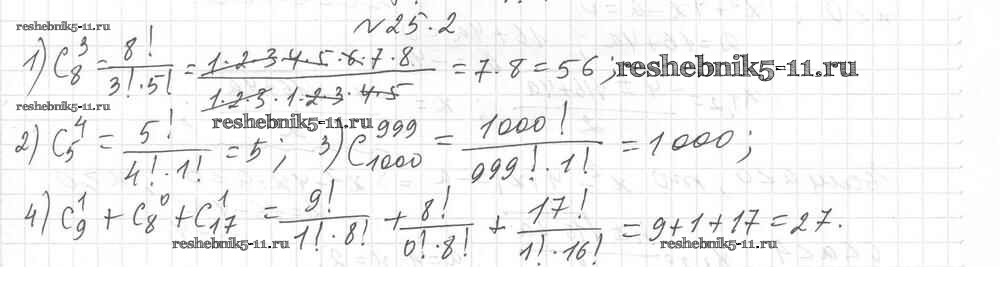 №25.2
reshebnik5-11.ru
1) C₈³ = 8! / (3!·5!) = (1·2·3·4·5·6·7·8) / (1·2·3·1·2·3·4·5) = 7·8 = 56; reshebnik5-11.ru
reshebnik5-11.ru
reshebnik5-11.ru
2) C₅⁴ = 5! / (4!·1!) = 5; 3) C₁₀₀₀⁹⁹⁹ = 1000! / (999!·1!) = 1000;
4) C₉¹ + C₈⁰ + C₁₇¹ = 9! / (1!·8!) + 8! / (0!·8!) + 17! / (1!·16!) = 9+1+17 = 27.
reshebnik5-11.ru reshebnik5-11.ru